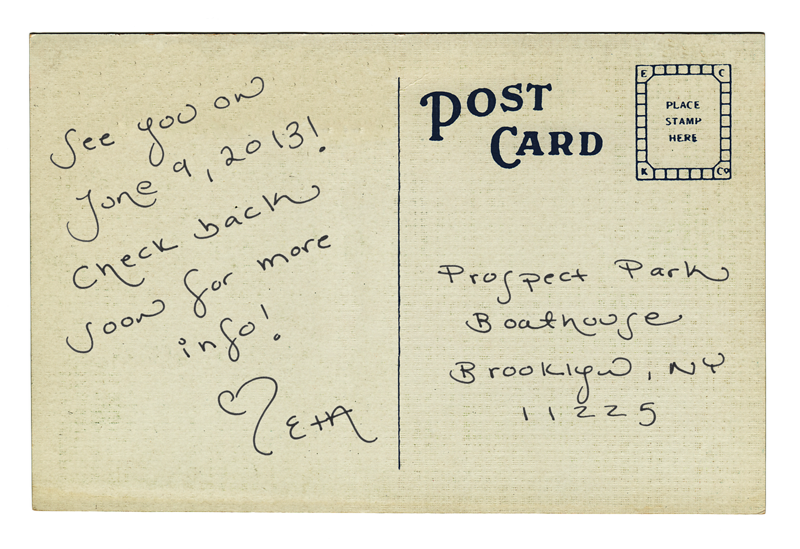 See you on
June 9, 2013!
Check back
soon for more
info!
E+A
POST
CARD
E C
PLACE
STAMP
HERE
K Co
Prospect Park
Boathouse
Brooklyn, NY
11225